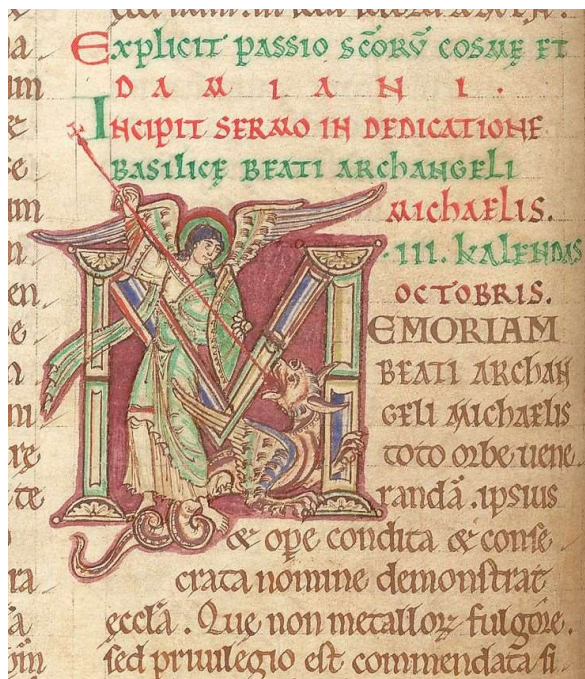 Explicit passio sc̄orv̄ cosmę et
DAMIANI.
Incipit sermo in dedicatione
basilicę beati archangeli
michaelis.
·III. kalendas
octobris.
MEMORIAM
beati archan
geli michaelis
toto orbe uene
randā. ipsius
& ope condita & conse
crata nomine demonstrat
ęccl̄a. Que non metalloꝝ fulgore.
sed priuilegio est commendata si